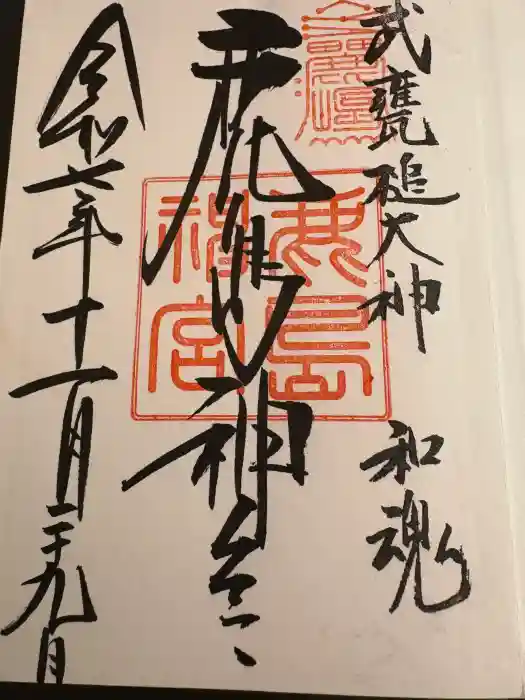 武甕槌大神　和魂
鹿島神宮
令和七年十一月二十九日
鹿島神宮